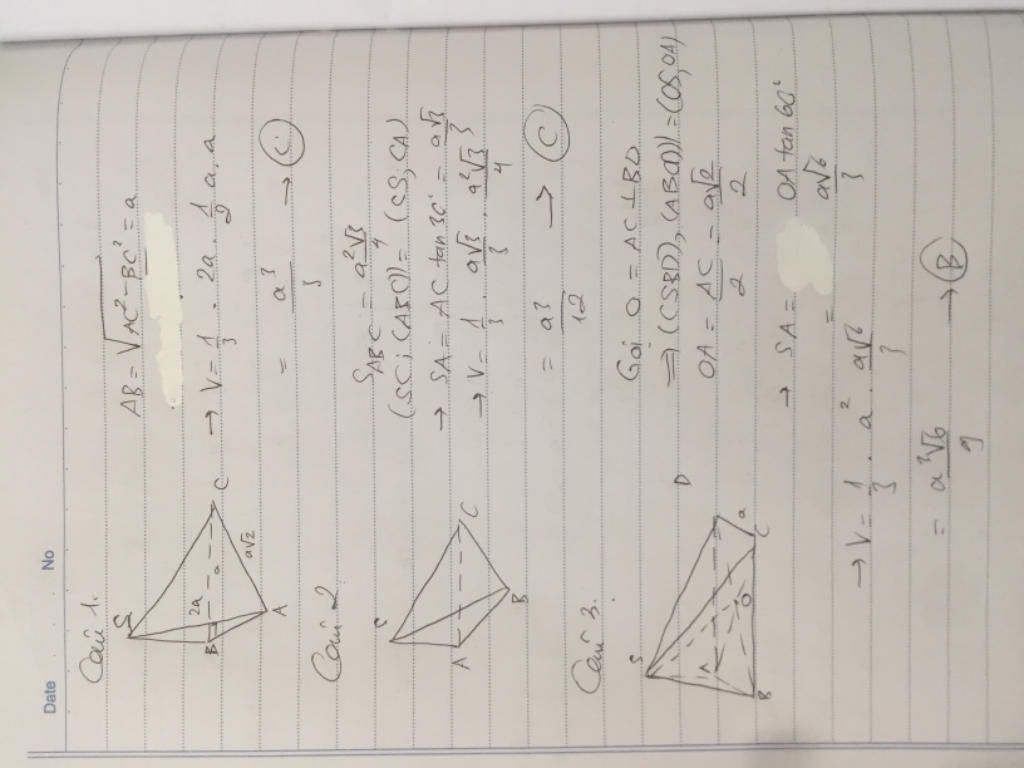 Date No
Câu 1.
S
2a
B
a
C
a√2
A
AB = √(AC² - BC²) = a
→ V = 1/3 . 2a . 1/2 a . a
= a³/3 → C
Câu 2
S
A
C
B
S_ABC = a²√3/4
(SC; (ABC)) = (CS; CA)
→ SA = AC tan 30° = a√3/3
→ V = 1/3 . a√3/3 . a²√3/4
= a³/12 → C
Câu 3.
S
D
A
a
O
B
C
Gọi O = AC ⊥ BD
⇒ ((SBD), (ABCD)) = (OS, OA)
OA = AC/2 = a√2/2
→ SA = OA tan 60°
= a√6/3
→ V = 1/3 . a² . a√6/3
= a³√6/9 → B